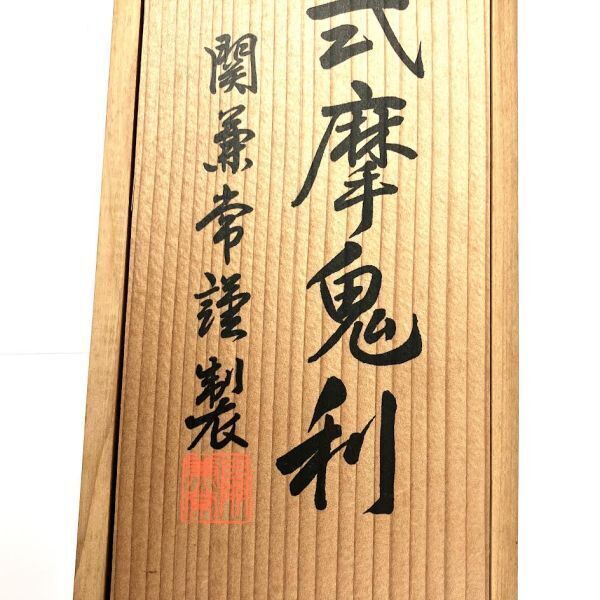 式摩鬼利
関兼常謹製